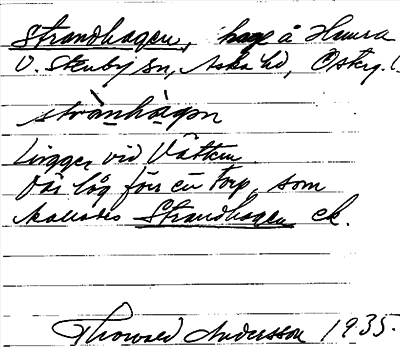 Strandhagen, hage å Hamra
V. Stenby sn, Aska hd, Österg. l.
strànhàgən
Ligger vid Vättern.
Där låg förr en torp, som
kallades Strandhagen ck.
Thorvald Andersson 1935.